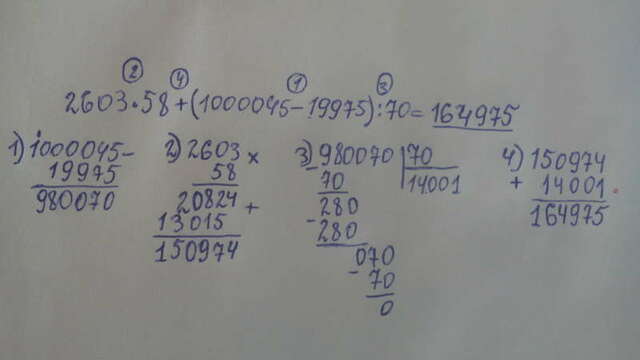 ② ④ ① ③
2603·58+(1000045-19975):70=164975
1) 1000045-
19975
980070
2) 2603 ×
58
20824 +
13015
150974
3) 980070 | 70
- 70 14001
280
- 280
070
- 70
0
4) 150974
+ 14001
164975